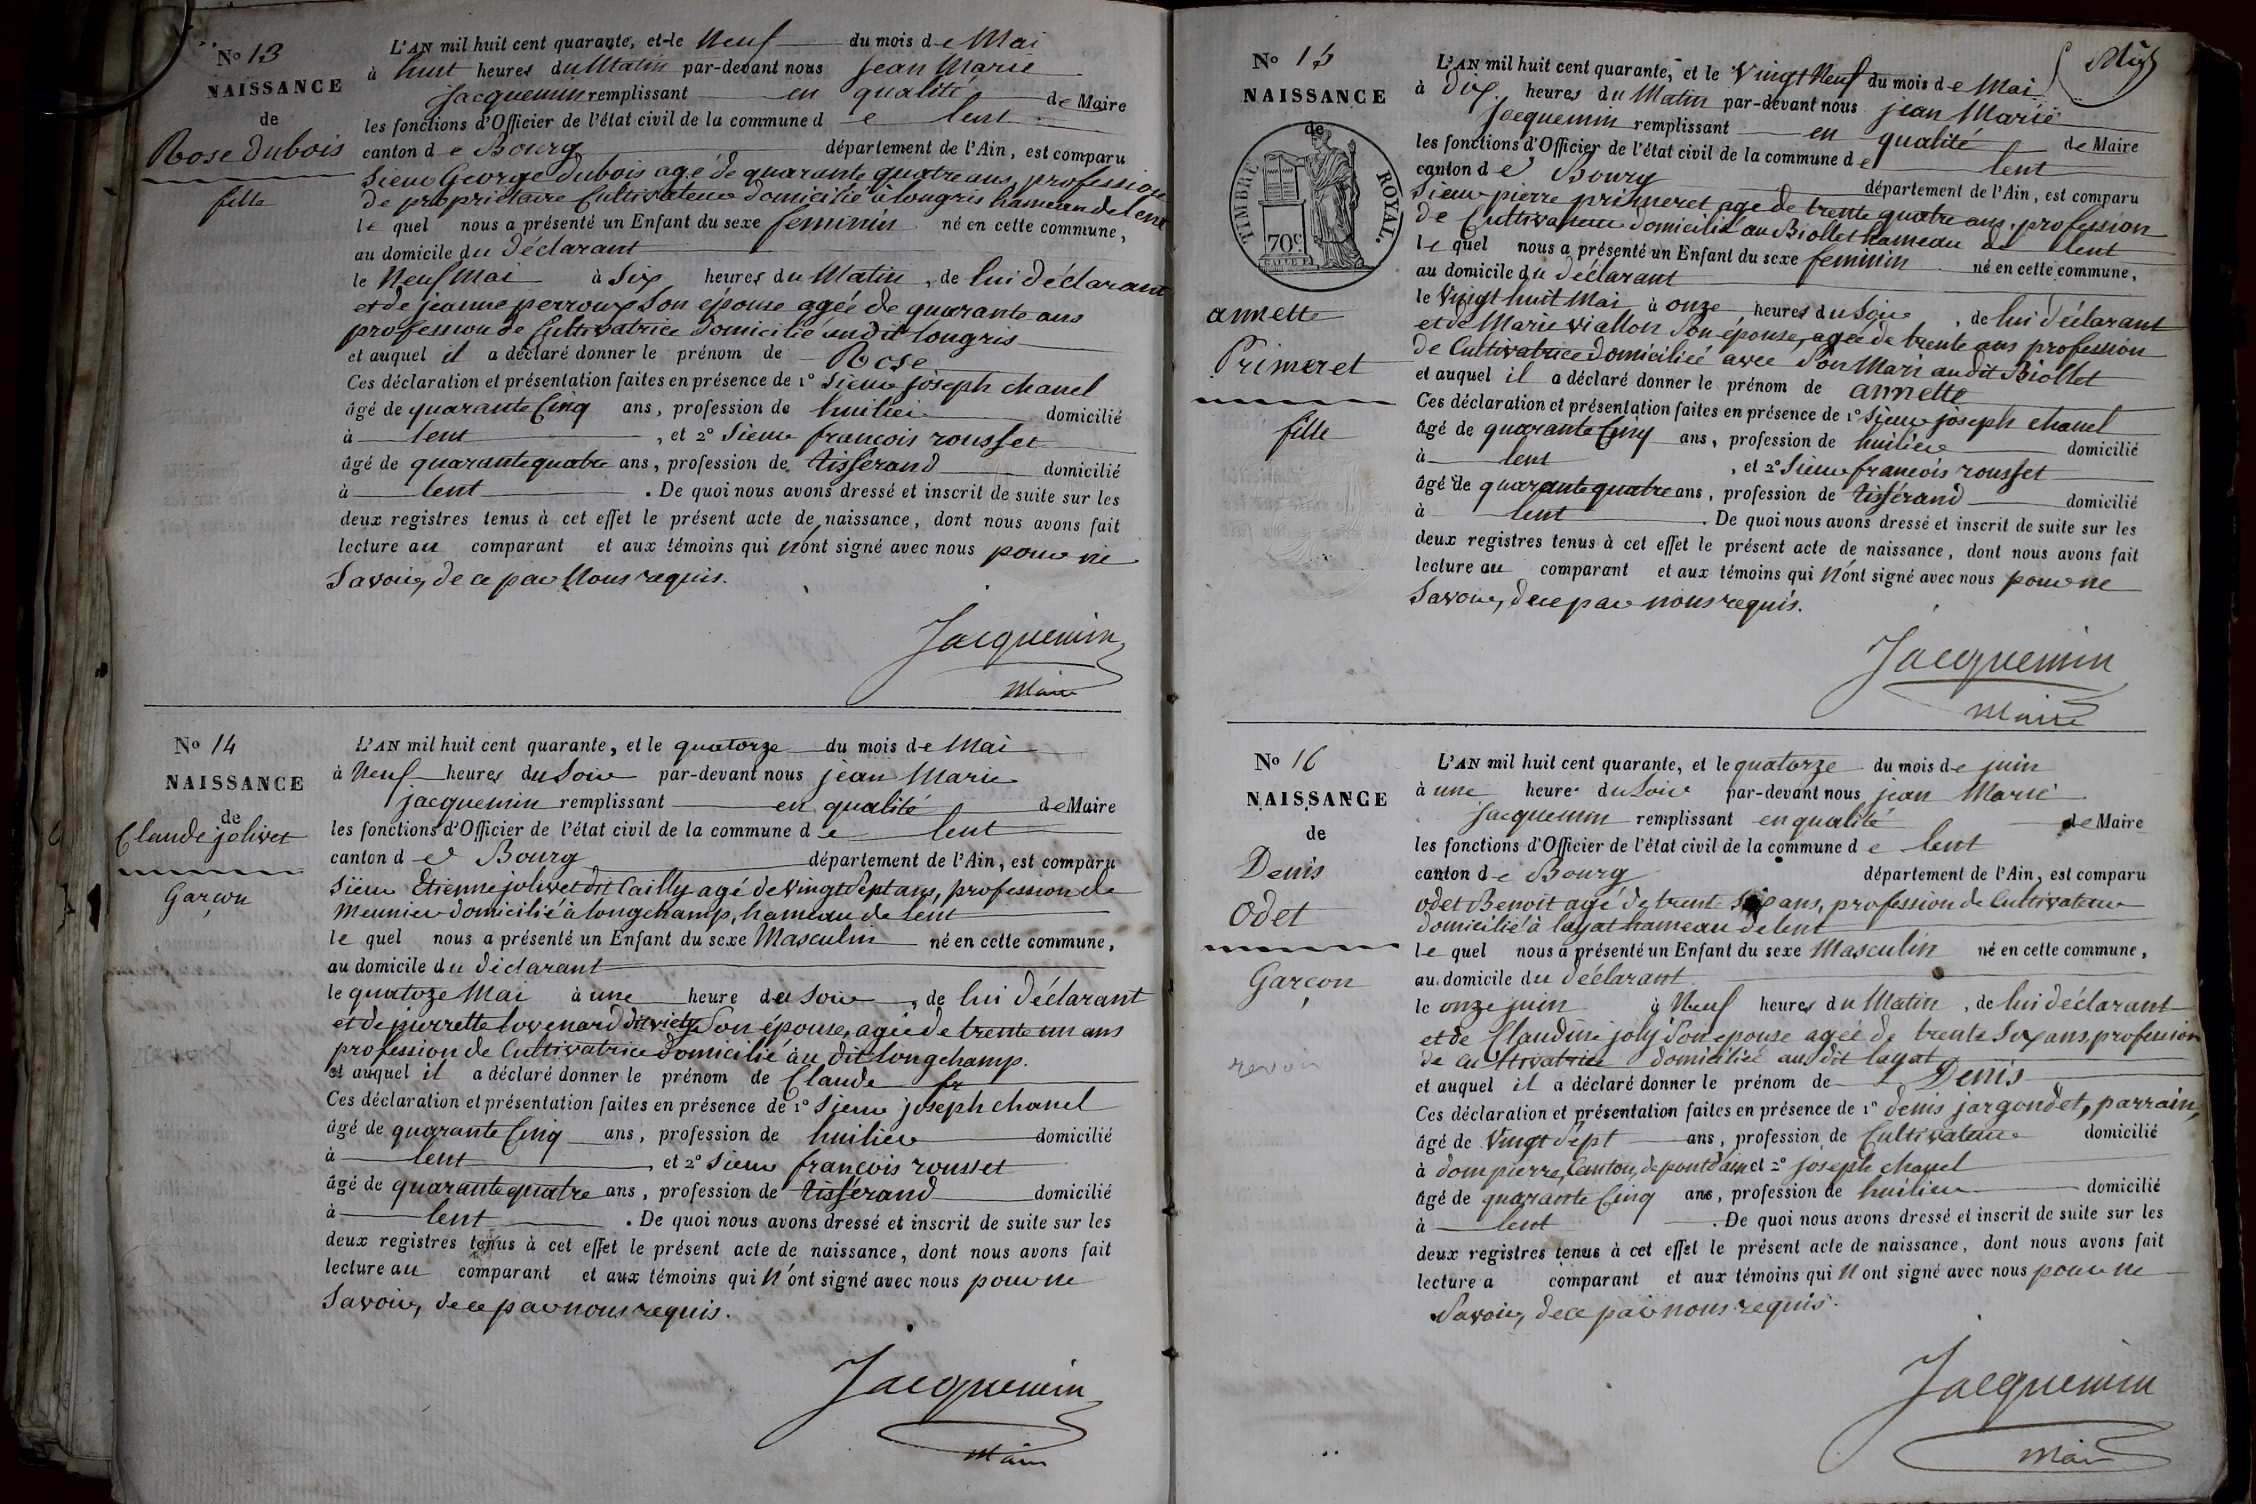 No 13
NAISSANCE
de
Rose Dubois
fille
L'AN mil huit cent quarante, et le Neuf du mois de Mai
à huit heures du Matin par-devant nous Jean Marie
Jacquemin remplissant en qualité de Maire
les fonctions d'Officier de l'état civil de la commune de lent
canton de Bourg département de l'Ain, est comparu
Sieur George Dubois agé de quarante quatre ans, profession
de propriétaire Cultivateur domicilié à longris hameau de lent
lequel nous a présenté un Enfant du sexe féminin né en cette commune,
au domicile du déclarant
le Neuf Mai à Six heures du Matin, de lui déclarant
et de jeanne perroux Son épouse agée de quarante ans
profession de Cultivatrice domicilié audit longris
et auquel il a déclaré donner le prénom de Rose
Ces déclaration et présentation faites en présence de 1o Sieur joseph chanel
âgé de quarante Cinq ans, profession de huilier domicilié
à lent, et 2o Sieur francois rousset
âgé de quarante quatre ans, profession de tissérand domicilié
à lent. De quoi nous avons dressé et inscrit de suite sur les
deux registres tenus à cet effet le présent acte de naissance, dont nous avons fait
lecture au comparant et aux témoins qui n'ont signé avec nous pour ne
Savoir, de ce par Nous requis.
Jacquemin
Maire
No 14
NAISSANCE
de
Claude jolivet
Garçon
L'AN mil huit cent quarante, et le quatorze du mois de Mai
à Neuf heures du Soir par-devant nous jean Marie
jacquemin remplissant en qualité de Maire
les fonctions d'Officier de l'état civil de la commune de lent
canton de Bourg département de l'Ain, est comparu
Sieur Etienne jolivet dit Cailly agé de Vingt Sept ans, profession de
Meunier domicilié à longchamp, hameau de lent
lequel nous a présenté un Enfant du sexe Masculin né en cette commune,
au domicile du déclarant
le quatoze Mai à une heure du Soir, de lui déclarant
et de pierrette dit Son épouse, agée de trente un ans
profession de Cultivatrice domicilié au dit longchamp.
et auquel il a déclaré donner le prénom de Claude
Ces déclaration et présentation faites en présence de 1o Sieur joseph chanel
âgé de quarante Cinq ans, profession de huilier domicilié
à lent, et 2o Sieur françois rousset
âgé de quarante quatre ans, profession de tissérand domicilié
à lent. De quoi nous avons dressé et inscrit de suite sur les
deux registres tenus à cet effet le présent acte de naissance, dont nous avons fait
lecture au comparant et aux témoins qui n'ont signé avec nous pour ne
Savoir, de ce par nous requis.
Jacquemin
Maire
No 15
NAISSANCE
de
TIMBRE ROYAL.
70c
annette
Primeret
fille
L'AN mil huit cent quarante, et le Vingt Neuf du mois de Mai
à dix heures du Matin par-devant nous jean Marie
Jacquemin remplissant en qualité de Maire
les fonctions d'Officier de l'état civil de la commune de lent
canton de Bourg département de l'Ain, est comparu
Sieur pierre primeret agé de trente quatre ans, profession
de Cultivateur domicilié au Biollet hameau de lent
lequel nous a présenté un Enfant du sexe feminin né en cette commune,
au domicile du déclarant
le Vingt huit Mai à onze heures du Soir, de lui déclarant
et de Marie viallon Son épouse, agée de trente ans profession
de Cultivatrice domiciliée avec Son Mari au dit Biollet
et auquel il a déclaré donner le prénom de annette
Ces déclaration et présentation faites en présence de 1o Sieur joseph chanel
âgé de quarante Cinq ans, profession de huilier domicilié
à lent, et 2o Sieur francois rousset
âgé de quarante quatre ans, profession de tissérand domicilié
à lent. De quoi nous avons dressé et inscrit de suite sur les
deux registres tenus à cet effet le présent acte de naissance, dont nous avons fait
lecture au comparant et aux témoins qui n'ont signé avec nous pour ne
Savoir, de ce par nous requis.
Jacquemin
Maire
No 16
NAISSANCE
de
Denis
Odet
Garçon
revoir
L'AN mil huit cent quarante, et le quatorze du mois de juin
à une heure du Soir par-devant nous jean Marie
Jacquemin remplissant en qualité de Maire
les fonctions d'Officier de l'état civil de la commune de lent
canton de Bourg département de l'Ain, est comparu
odet Benoit agé de trente Six ans, profession de Cultivateur
domicilié à layat hameau de lent
lequel nous a présenté un Enfant du sexe Masculin né en cette commune,
au domicile du déclarant
le onze juin à Neuf heures du Matin, de lui déclarant
et de Claudine joly Son epouse agée de trente Six ans, profession
de Cultivatrice domiciliée au dit layat
et auquel il a déclaré donner le prénom de Denis
Ces déclaration et présentation faites en présence de 1o denis jargondet, parrain,
âgé de Vingt Sept ans, profession de Cultivateur domicilié
à dompierre, Canton, de pont d'ain et 2o joseph chanel
âgé de quarante Cinq ans, profession de huilier domicilié
à lent. De quoi nous avons dressé et inscrit de suite sur les
deux registres tenus à cet effet le présent acte de naissance, dont nous avons fait
lecture a comparant et aux témoins qui n ont signé avec nous pour ne
Savoir, de ce par nous requis.
Jacquemin
Maire